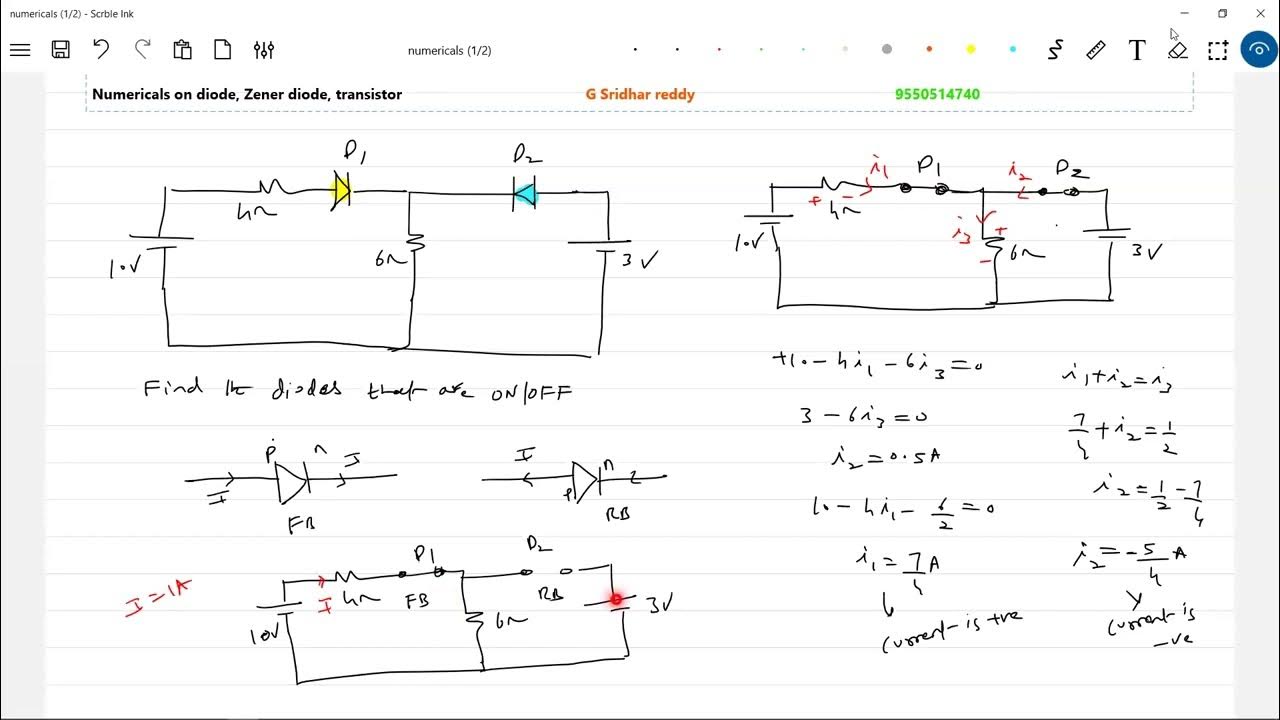 numericals (1/2) - Scrble Ink
numericals (1/2)
T
Numericals on diode, Zener diode, transistor G Sridhar reddy 9550514740
D1 D2
4Ω
10V
6Ω
3V
i1 D1 i2 D2
+ - 4Ω
10V
i3 + 6Ω -
3V
Find the diodes that are ON/OFF
p n I
I
FB
I n
p
RB
I=1A
D1 D2
I 4Ω FB RB
10V
6Ω
3V
+10-4i1-6i3=0
3-6i3=0
i2=0.5A
10-4i1-6/2=0
i1=7/4A
current is +ve
i1+i2=i3
7/4+i2=1/2
i2=1/2-7/4
i2=-5/4A
current is
-ve